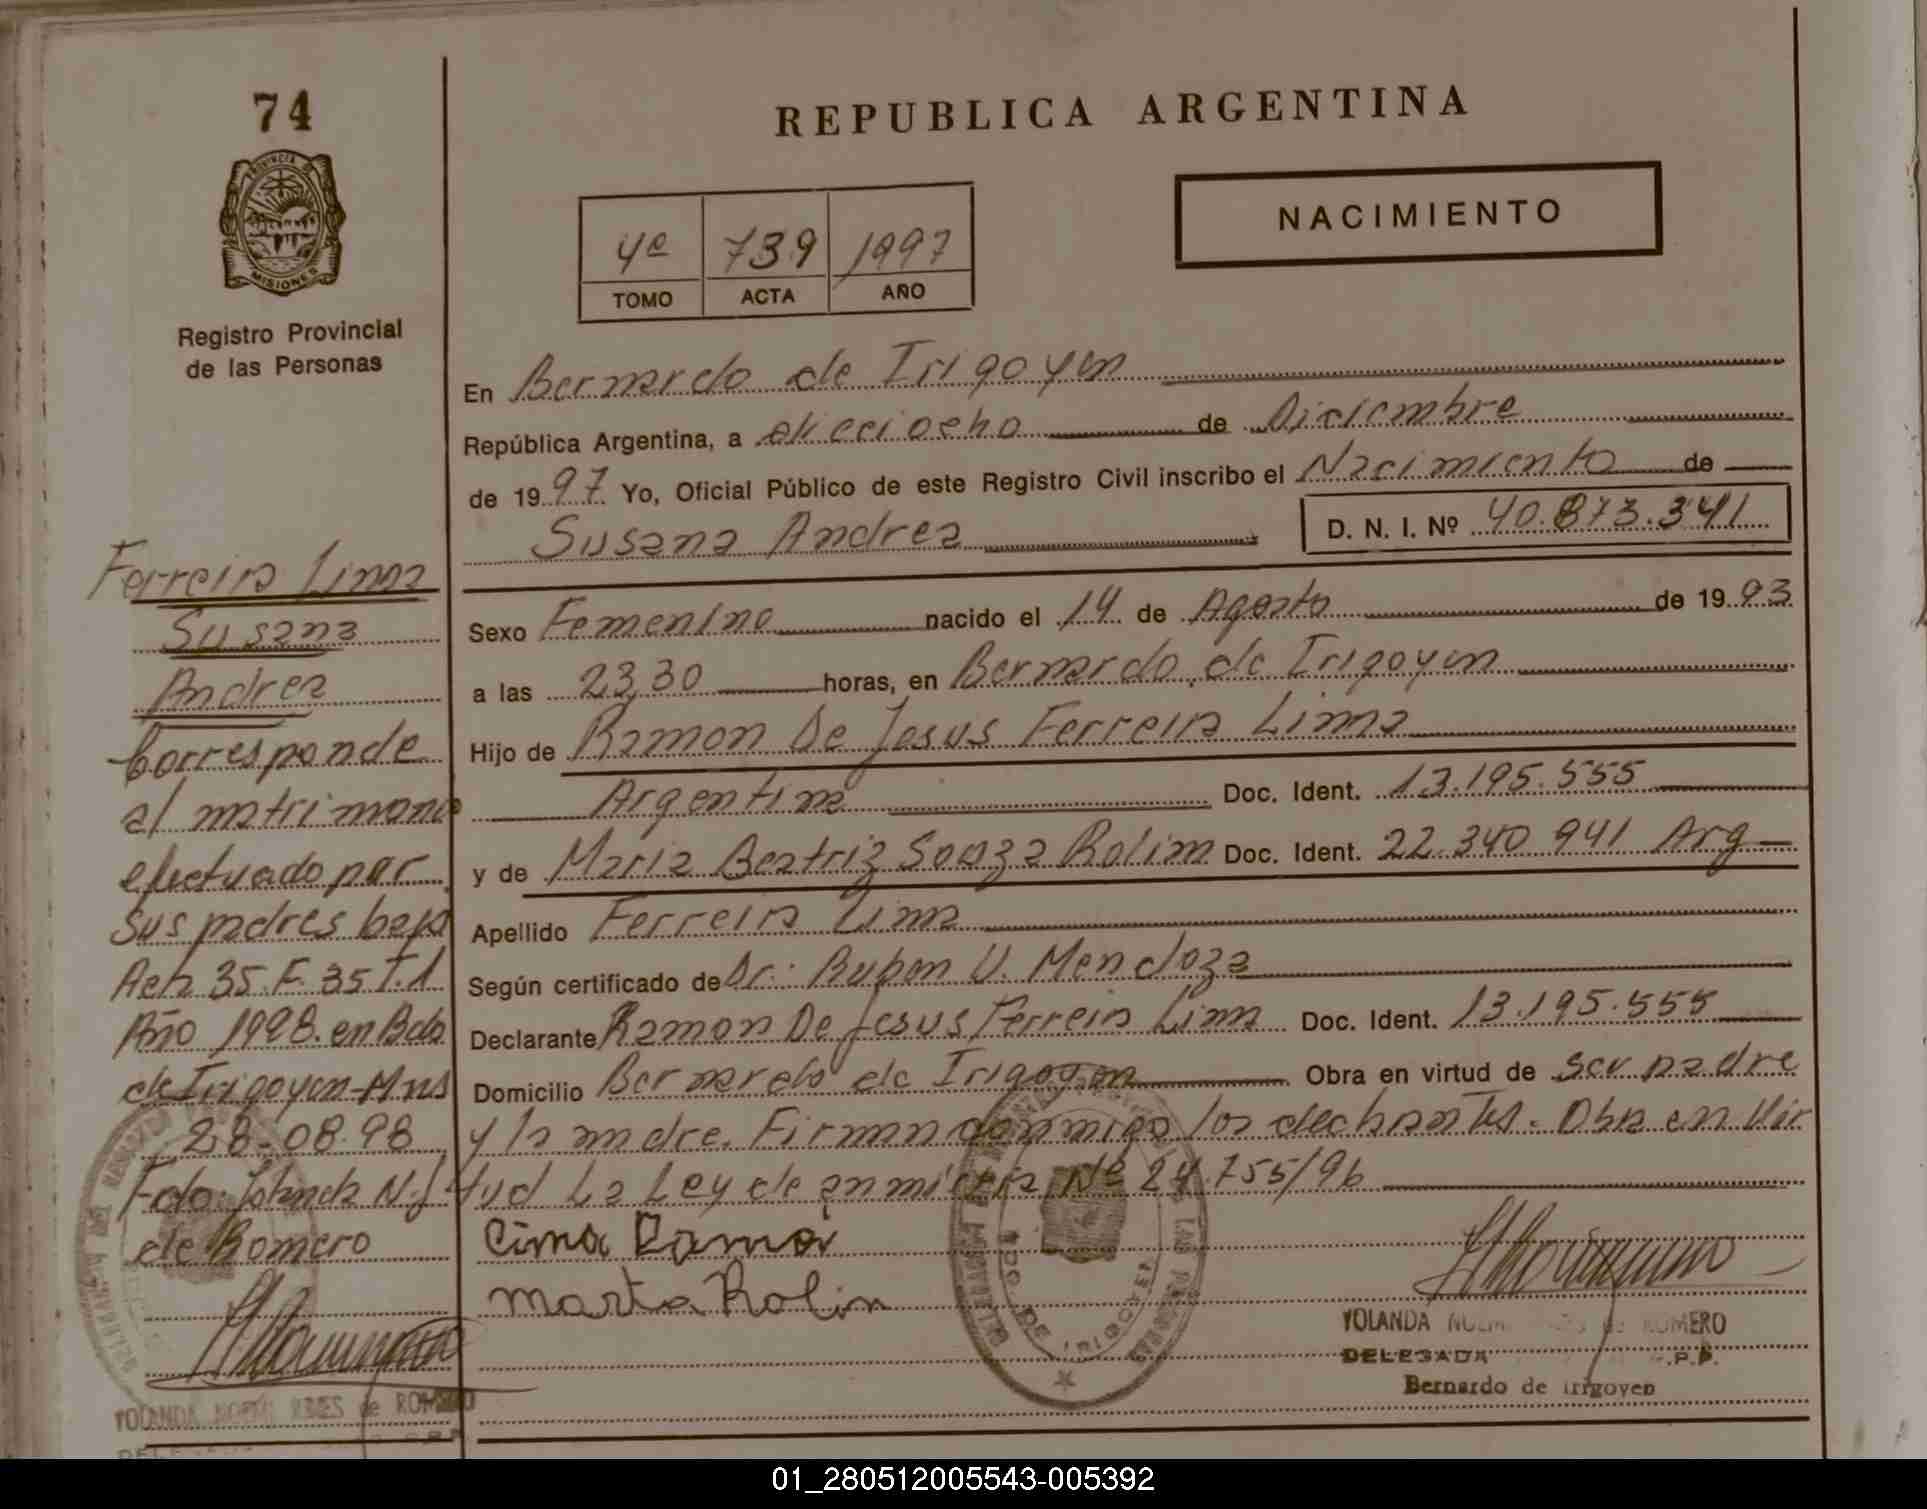 74
PROVINCIA DE
MISIONES
Registro Provincial
de las Personas
Ferreira Lima
Susana
Andrea
Corresponde
al matrimonio
efectuado por
sus padres bajo
Acta 35 F. 35 T.1
Año 1998. en Bdo
de Irigoyen-Mns
28-08-98
Fdo: Yolanda N.
de Romero
YOLANDA NOEMI de ROMERO
REPUBLICA ARGENTINA
NACIMIENTO
4º 739 1997
TOMO ACTA AÑO
En Bernardo de Irigoyen
República Argentina, a dieciocho de Diciembre
de 1997 Yo, Oficial Público de este Registro Civil inscribo el Nacimiento de
Susana Andrea D. N. I. Nº 40.873.341
Sexo Femenino nacido el 14 de Agosto de 1993
a las 23,30 horas, en Bernardo de Irigoyen
Hijo de Ramon De Jesus Ferreira Lima
Argentina Doc. Ident. 13.195.555
y de Maria Beatriz Souza Rolim Doc. Ident. 22.340.941 Arg
Apellido Ferreira Lima
Según certificado de Dr: Ruben V. Mendoza
Declarante Ramon De Jesus Ferreira Lima Doc. Ident. 13.195.555
Domicilio Bernardo de Irigoyen Obra en virtud de ser padre
y la madre. Firman conmigo los declarantes. Obra en Vir
tud La Ley de amnistia Nº 24.755/96
Lima Ramon
Marta Rolin
BDO. DE IRIGOYEN
YOLANDA de ROMERO
DELEGADA R.P.P.
Bernardo de Irigoyen
01_280512005543-005392